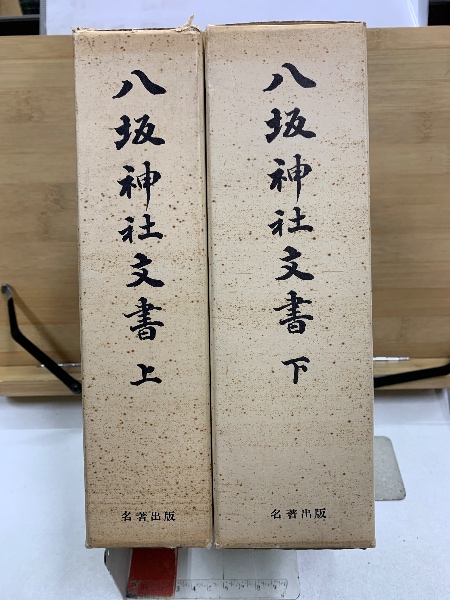 八坂神社文書 上
名著出版
八坂神社文書 下
名著出版